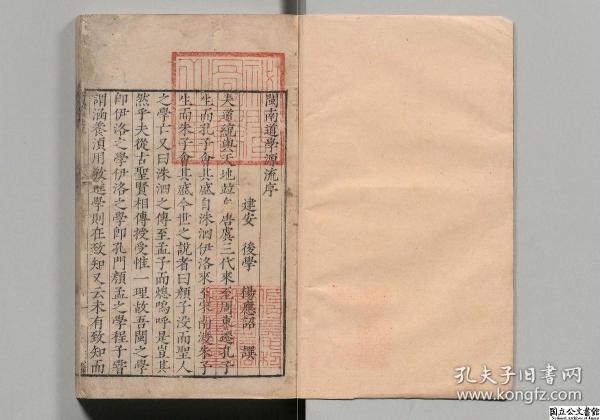 閩南道學源流序
建安 後學 楊應詔 譔
夫道統與天地竝自唐虞三代來至周東遷孔子
生而孔子會其盛自洙泗伊洛來至宋南渡朱子
生而朱子會其盛今世之說者曰顏子没而聖人
之學亡又曰洙泗之傳至孟子而熄嗚呼是豈其
然乎夫從古聖賢相傳授受惟一理故吾閩之學
即伊洛之學伊洛之學即孔門顏孟之學程子嘗
謂涵養湏用敬進學則在致知又云未有致知而
孔夫子旧书网
国立公文書館